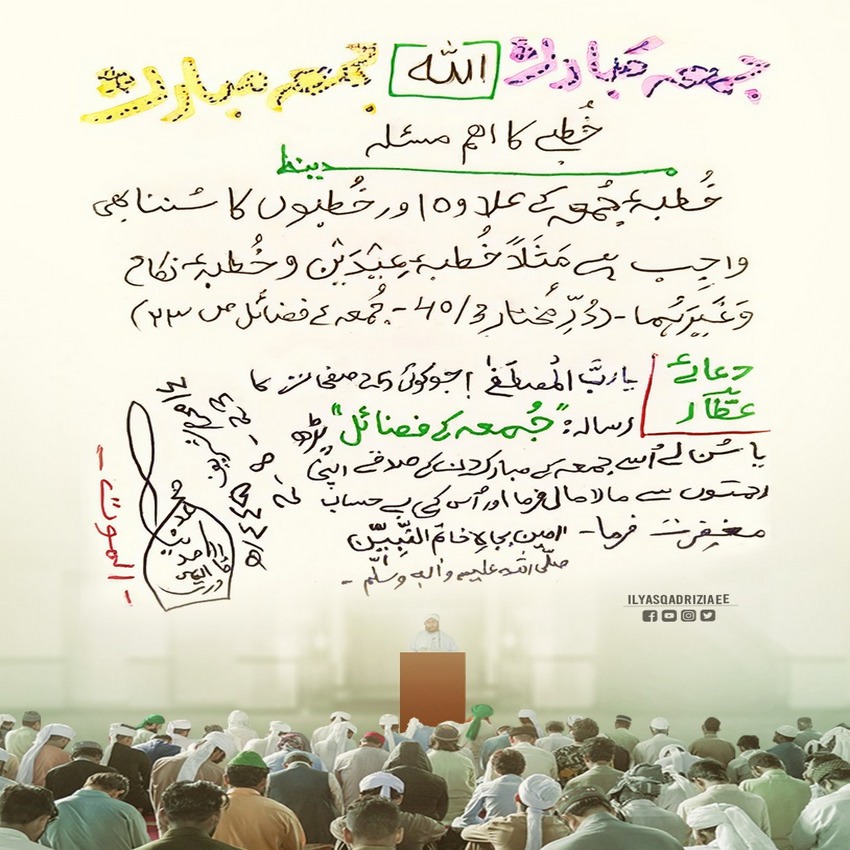 جمعہ مبارک اللہ جمعہ مبارک
خُطبے کا اہم مسئلہ
خُطبۂ جُمعہ کے علاوہ اور خُطبوں کا سُننا بھی
واجِب ہے مَثَلاً خُطبۂ عِیْدَیْن و خُطبۂ نکاح
وَغَیرَہُما۔ (دُرِّ مُختار 3/40۔ جُمعہ کے فضائل ص ۲۳)
دعائے عطّار
یا ربَّ المُصطَفٰے! جو کوئی 25 صفحات کا
رسالہ: "جُمعہ کے فضائل" پڑھ
یا سُن لے اُسے جمعہ کے مبارک دن کے صدقے اپنی
رحمتوں سے مالا مال فرما اور اُس کی بے حساب
مغفِرت فرما۔ امین بِجاہِ خاتَمِ النَّبِیّٖن
صلَّی اللہ علیہ واٰلہٖ وسلَّم۔
الموت
ILYASQADRIZIAEE